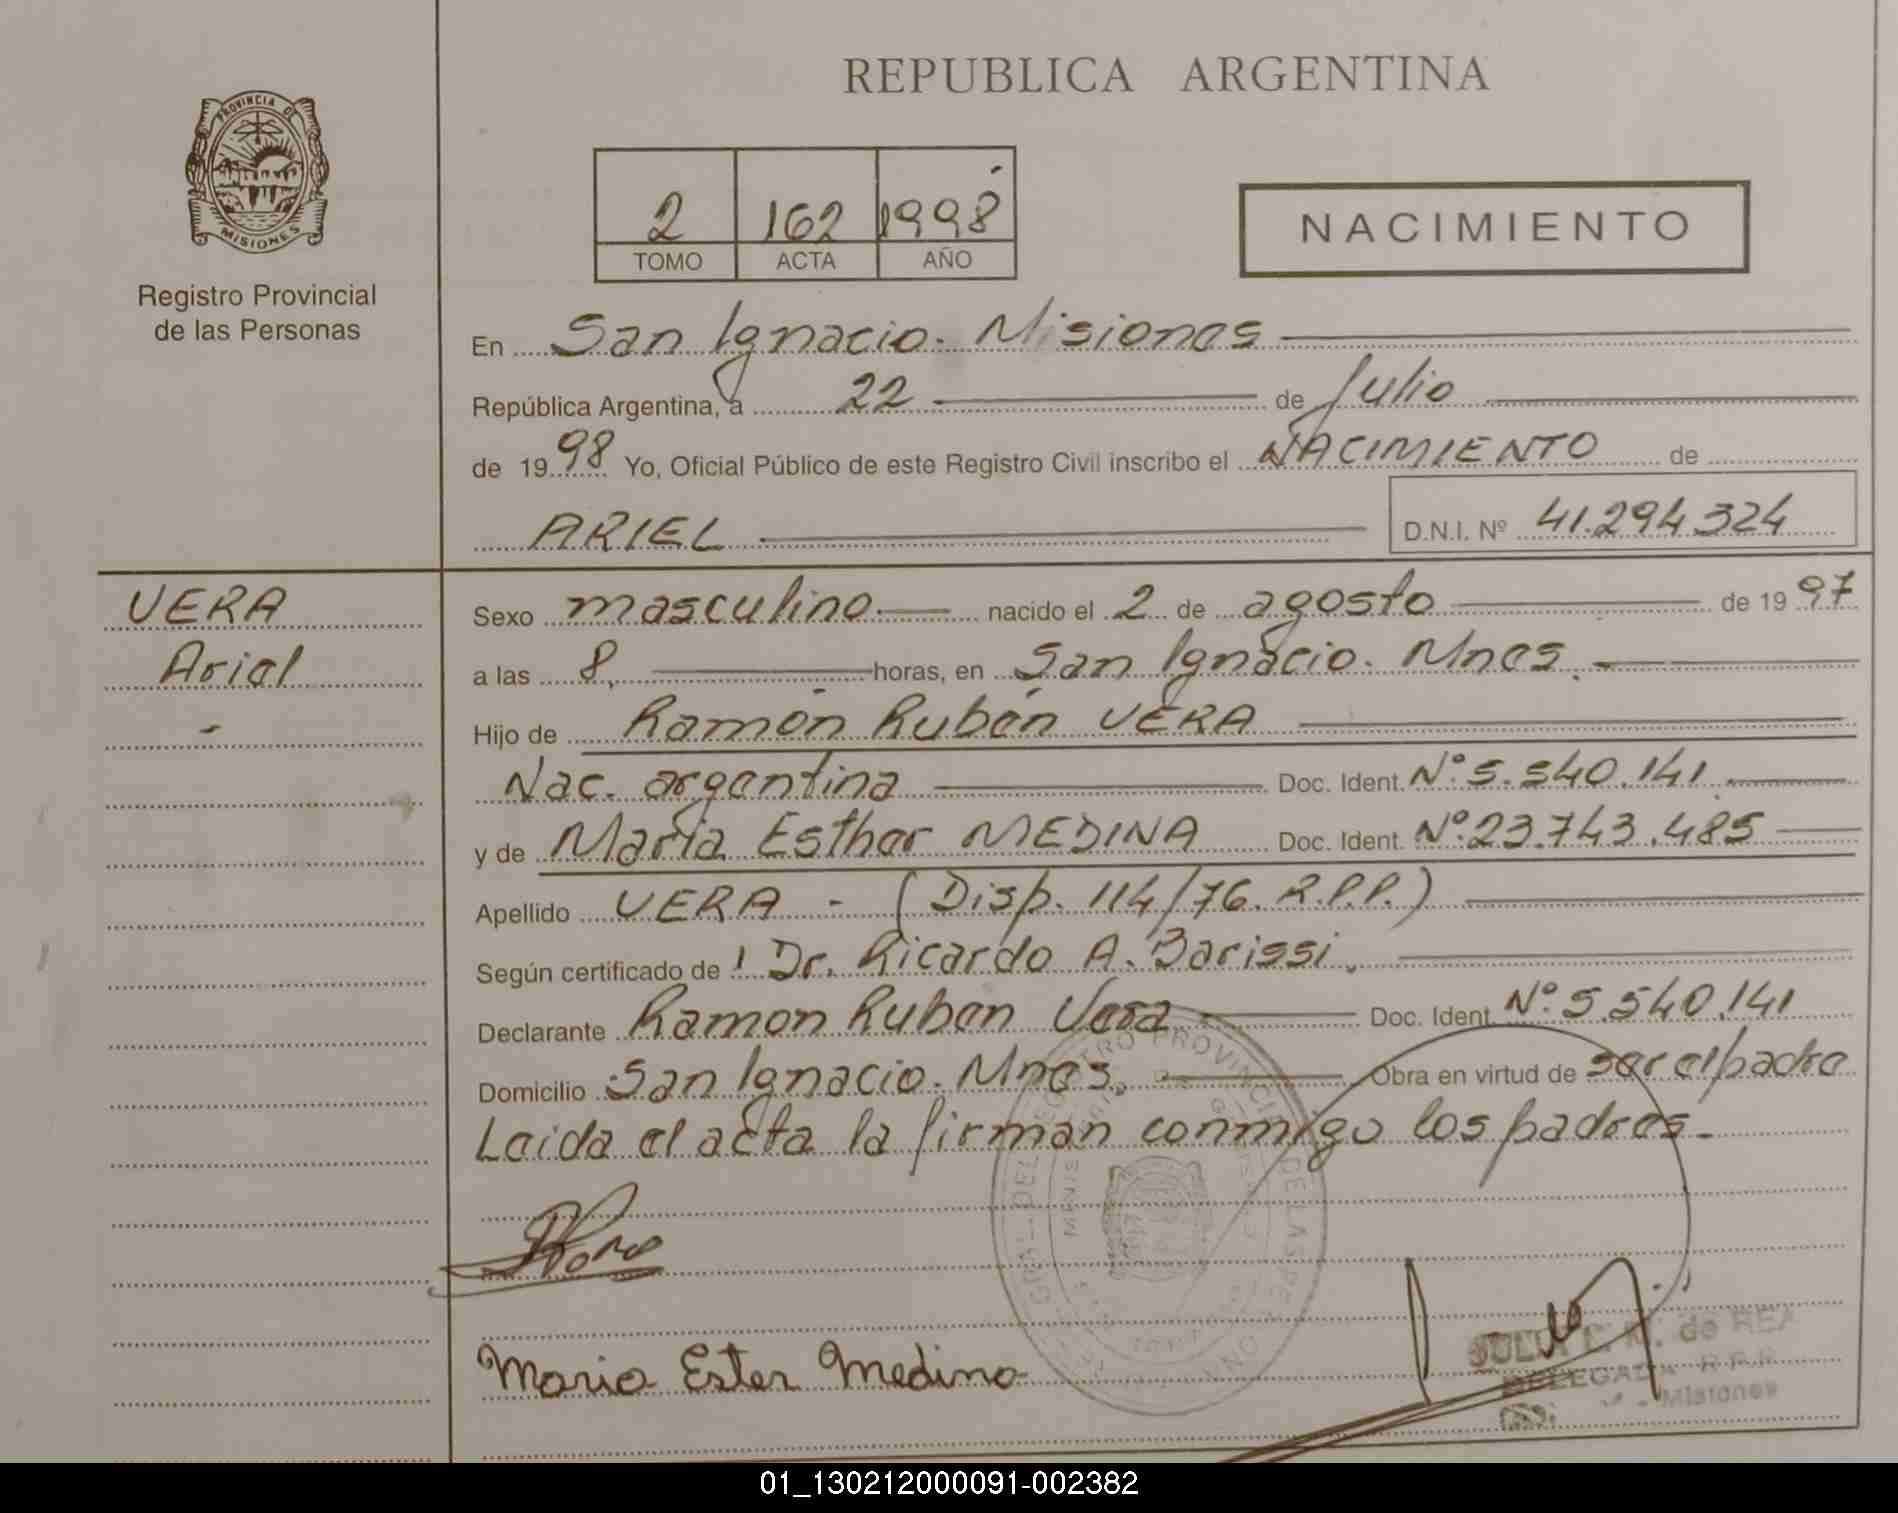 REPUBLICA ARGENTINA
PROVINCIA DE
MISIONES
Registro Provincial
de las Personas
2 162 1998
TOMO ACTA AÑO
NACIMIENTO
En San Ignacio. Misiones
República Argentina, a 22 de Julio
de 1998 Yo, Oficial Público de este Registro Civil inscribo el NACIMIENTO de
ARIEL D.N.I. Nº 41.294.324
VERA
Ariel
Sexo masculino nacido el 2 de agosto de 1997
a las 8, horas, en San Ignacio. Mnes.
Hijo de Ramón Rubén VERA
Nac. argentina Doc. Ident. Nº 5.540.141
y de María Esther MEDINA Doc. Ident. Nº 23.743.485
Apellido VERA - (Disp. 114/76. R.P.P.)
Según certificado de Dr. Ricardo A. Barissi.
Declarante Ramon Ruben Vera Doc. Ident. Nº 5.540.141
Domicilio San Ignacio. Mnes. Obra en virtud de ser el padre
Leida el acta la firman conmigo los padres.
Maria Ester Medina
DELEGADA R.P.P.
Misiones
01_130212000091-002382